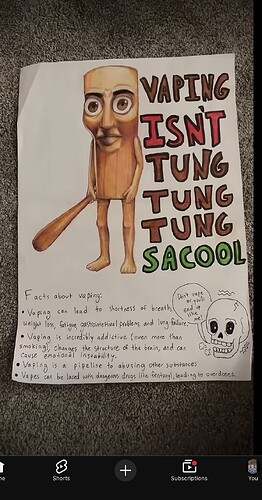 VAPING
ISN'T
TUNG
TUNG
TUNG
SACOOL
Facts about vaping:
• Vaping can lead to shortness of breath,
weight loss, fatigue, gastrointestinal problems and lung failure.
• Vaping is incredibly addictive (even more than
smoking), changes the structure of the brain, and can
cause emotional instability.
• Vaping is a pipeline to abusing other substances
• Vapes can be laced with dangerous drugs like fentanyl, leading to overdoses.
Don't vape
or you'll
end up
like
me!
Shorts
Subscriptions
You